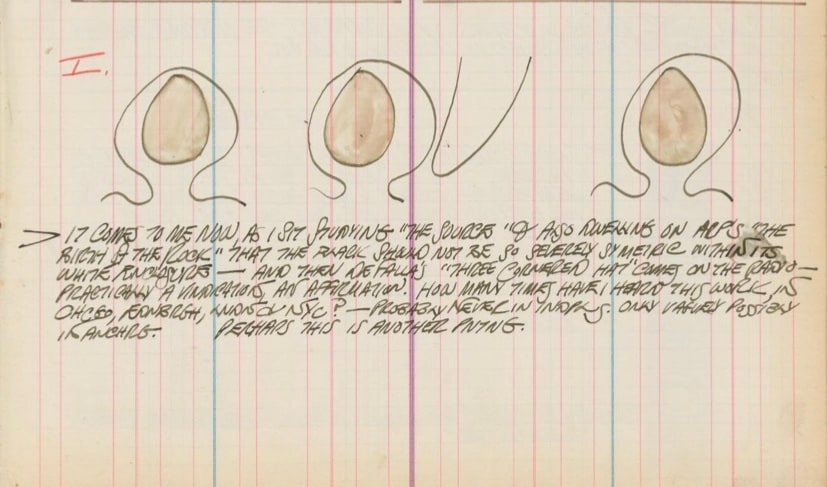 I.
> IT COMES TO ME NOW AS I SIT STUDYING "THE SOURCES" & ALSO DWELLING ON ARP'S "THE
BIRTH OF THE ROCK" THAT THE BLACK SHOULD NOT BE SO SEVERELY SYMETRIC WITHIN ITS
WHITE ENCLOSURES — AND THEN DE FALLA'S "THREE CORNERED HAT" COMES ON THE RADIO —
PRACTICALLY A VINDICATION, AN AFFIRMATION. HOW MANY TIMES HAVE I HEARD THIS WORK, IN
NYC? — PROBABLY NEVER IN ONLY VAGUELY POSSIBLY
IN ANCHRG. PERHAPS THIS IS ANOTHER PNTNG.